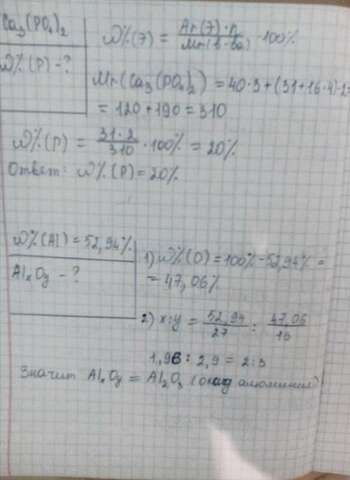 Ca3(PO4)2
W%(P) - ?
W%(Э) = Ar(Э)·n / Mr(в-ва) · 100%
Mr(Ca3(PO4)2) = 40·3+(31+16·4)·2
= 120+190 = 310
W%(P) = 31·2 / 310 · 100% = 20%
Ответ: W%(P) = 20%
W%(Al) = 52,94%
AlxOy - ?
1) W%(O) = 100% - 52,94% =
= 47,06%
2) x:y = 52,94 / 27 : 47,06 / 16
1,96 : 2,9 = 2:3
Значит AlxOy = Al2O3 (оксид алюминия)